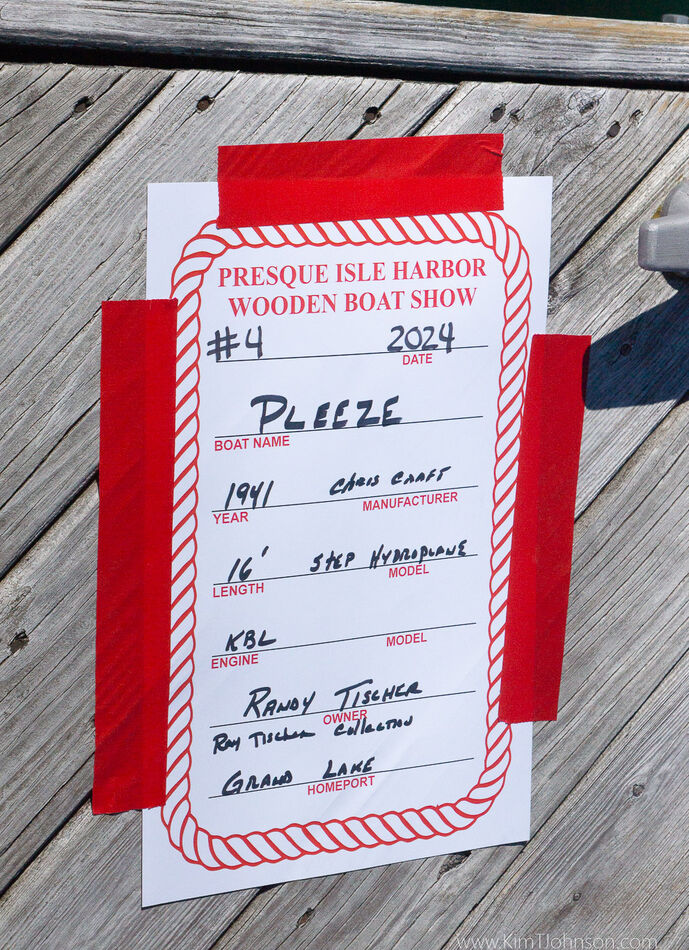 PRESQUE ISLE HARBOR
WOODEN BOAT SHOW
#4 2024
DATE
PLEEZE
BOAT NAME
1941 CHRIS CRAFT
YEAR MANUFACTURER
16' STEP HYDROPLANE
LENGTH MODEL
KBL
ENGINE MODEL
RANDY TISCHER
OWNER
RAY TISCHER COLLECTION
GRAND LAKE
HOMEPORT
www.KimTJohnson.com